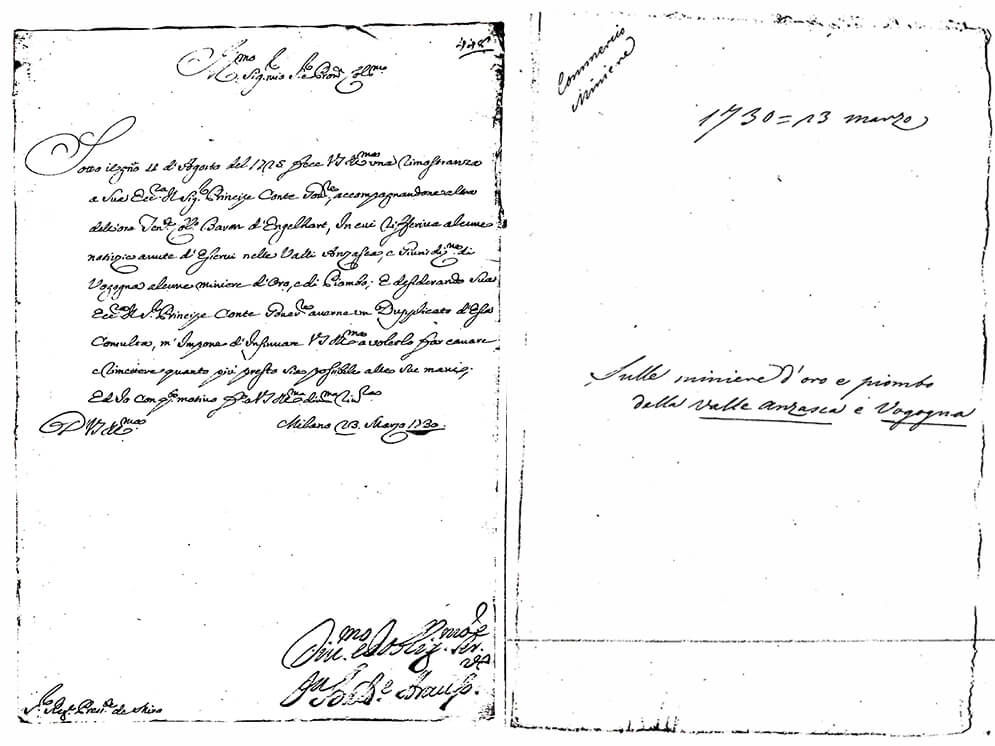 448
Sig.re
Sotto il giorno 12 d'Agosto del 1725 fece V.S. Ill.ma una rimostranza
a Sua Ecc.za il Sig.r Principe Conte Gov.re, accompagnandone altra
dell'ora Ten.te Col.lo Baron d'Engelhart, In cui riferiva alcune
notizie avute d'Esservi nelle Valli Anzasca e di
Vogogna alcune miniere d'Oro, e di Piombo; E desiderando Sua
Ecc.za il S.r Principe Conte Gover.re averne un Dupplicato d'Essa
Consulta, m'Impone d'Insinuare V.S. Ill.ma a volerlo far cavare
e rimettere quanto più presto sia possibile alle sue mani;
Ed Io con q.to motivo V.S. Ill.ma
D V.S. Ill.ma Milano 13. Marzo 1730.
Commercio
Miniere
1730 = 13 marzo
Sulle miniere d'oro e piombo
della valle anzasca e Vogogna